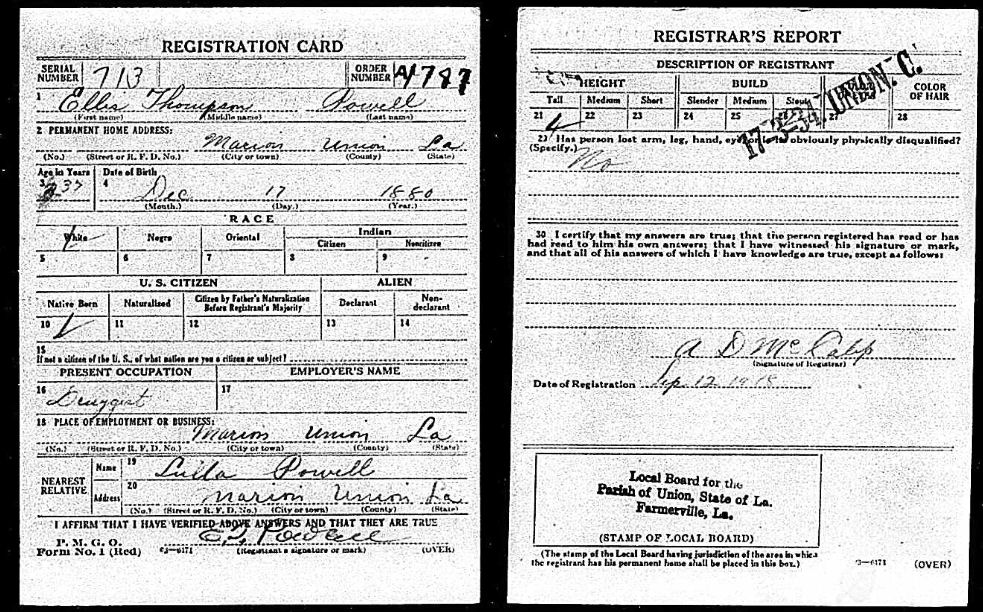 REGISTRATION CARD
SERIAL NUMBER 713 ORDER NUMBER A4787
1 Ellis Thompson Powell
(First name) (Middle name) (Last name)
2 PERMANENT HOME ADDRESS:
Marion Union La
(No.) (Street or R. F. D. No.) (City or town) (County) (State)
Age in Years Date of Birth
3 37 4 Dec 17 1880
(Month.) (Day.) (Year.)
RACE
White Negro Oriental Indian
Citizen Noncitizen
5 6 7 8 9
U. S. CITIZEN ALIEN
Native Born Naturalized Citizen by Father's Naturalization Before Registrant's Majority Declarant Non-declarant
10 11 12 13 14
15
If not a citizen of the U. S., of what nation are you a citizen or subject?
PRESENT OCCUPATION EMPLOYER'S NAME
16 Druggist 17
18 PLACE OF EMPLOYMENT OR BUSINESS:
Marion Union La
(No.) (Street or R. F. D. No.) (City or town) (County) (State)
NEAREST RELATIVE Name 19 Lulla Powell
Address 20 Marion Union La
(No.) (Street or R. F. D. No.) (City or town) (County) (State)
I AFFIRM THAT I HAVE VERIFIED ABOVE ANSWERS AND THAT THEY ARE TRUE
P. M. G. O.
Form No. 1 (Red) 03—6171 E T Powell
(Registrant's signature or mark) (OVER)
REGISTRAR'S REPORT
DESCRIPTION OF REGISTRANT
HEIGHT BUILD COLOR OF HAIR
Tall Medium Short Slender Medium Stout
21 22 23 24 25 28
17-3-34 UNION. C.
29 Has person lost arm, leg, hand, eye, or is he obviously physically disqualified?
(Specify.) No
30 I certify that my answers are true; that the person registered has read or has
had read to him his own answers; that I have witnessed his signature or mark,
and that all of his answers of which I have knowledge are true, except as follows:
A D McCalip
(Signature of Registrar)
Date of Registration Sep. 12 1918
Local Board for the
Parish of Union, State of La.
Farmerville, La.
(STAMP OF LOCAL BOARD)
(The stamp of the Local Board having jurisdiction of the area in which
the registrant has his permanent home shall be placed in this box.)
03—6171 (OVER)